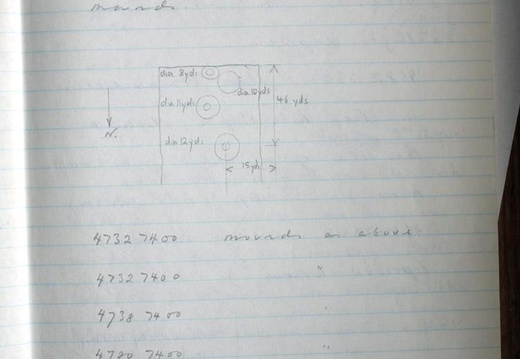 mounds.
dia. 8 yds
dia 10 yds
dia 11 yds
46 yds
N.
dia 12 yds
15 yds
4732 7400 mounds as above.
4732 7400 "
4738 7400 "
4780 7400 "